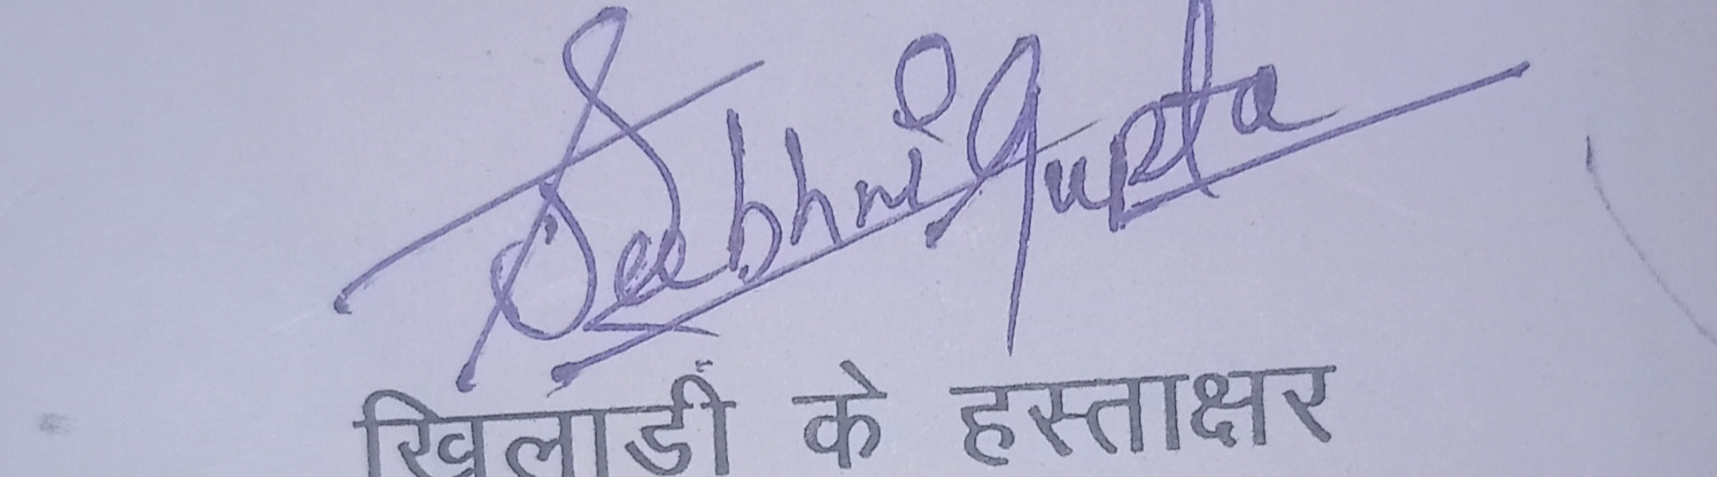 Seebhni Gupta
खिलाडी के हस्ताक्षर